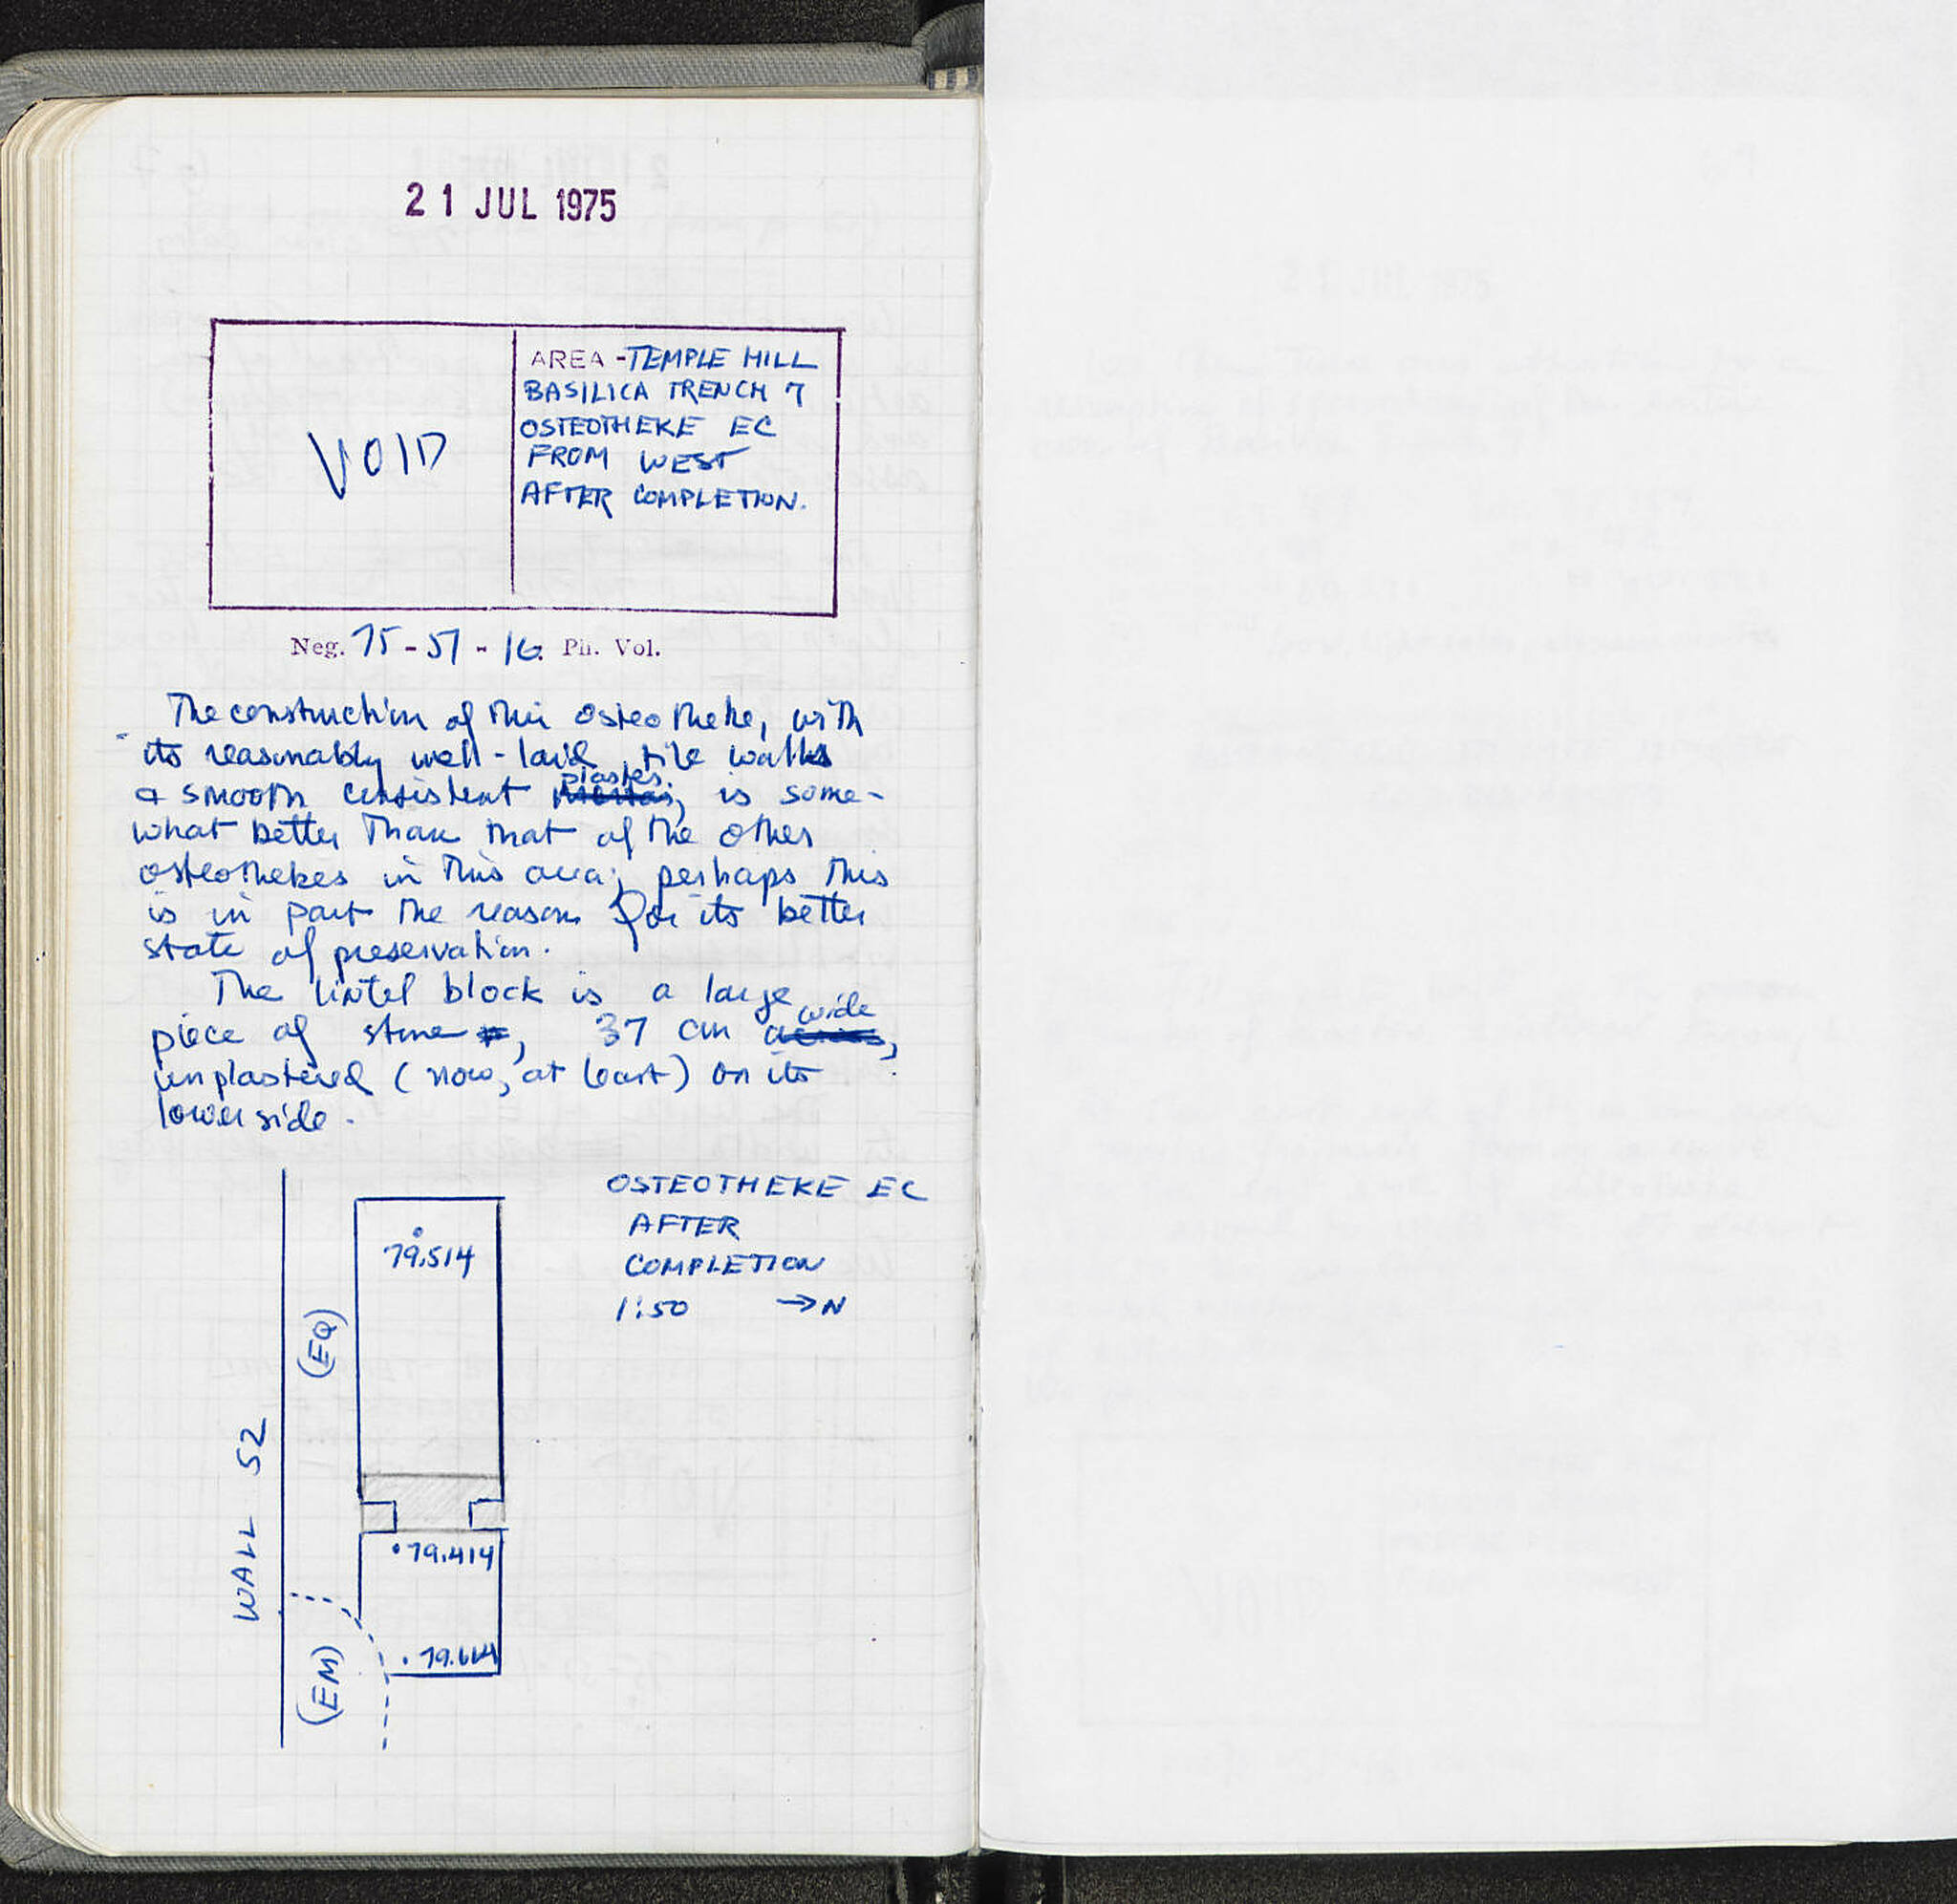 21 JUL 1975
VOID
AREA - TEMPLE HILL
BASILICA TRENCH 7
OSTEOTHEKE EC
FROM WEST
AFTER COMPLETION.
Neg. 75-51-16 Ph. Vol.
The construction of this osteotheke, with
its reasonably well-laid tile walls
& smooth consistent plaster, is some-
what better than that of the other
osteothekes in this area; perhaps this
is in part the reason for its better
state of preservation.
The lintel block is a large
piece of stone, 37 cm wide,
unplastered (now, at least) on its
lower side.
OSTEOTHEKE EC
AFTER
COMPLETION
1:50 → N
79.514
(EQ)
WALL 52
79.414
(EM)
79.664